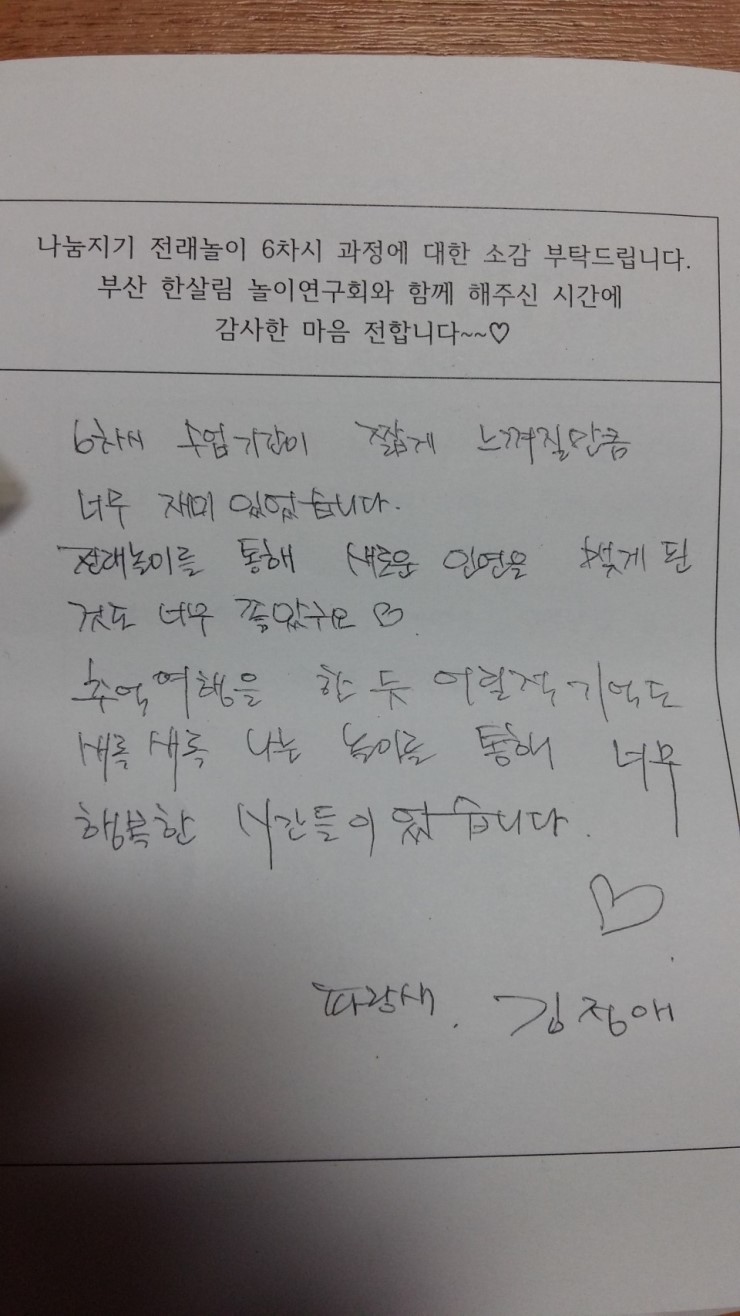 나눔지기 전래놀이 6차시 과정에 대한 소감 부탁드립니다.
부산 한살림 놀이연구회와 함께 해주신 시간에
감사한 마음 전합니다~~♡
6차시 수업기간이 짧게 느껴질만큼
너무 재미 있었습니다.
전래놀이를 통해 새로운 인연을 맺게 된
것도 너무 좋았구요 ♡.
추억여행을 한 듯 어릴적 기억도
새록 새록 나는 놀이를 통해 너무
행복한 시간들이었습니다.
♡
파랑새. 김정애